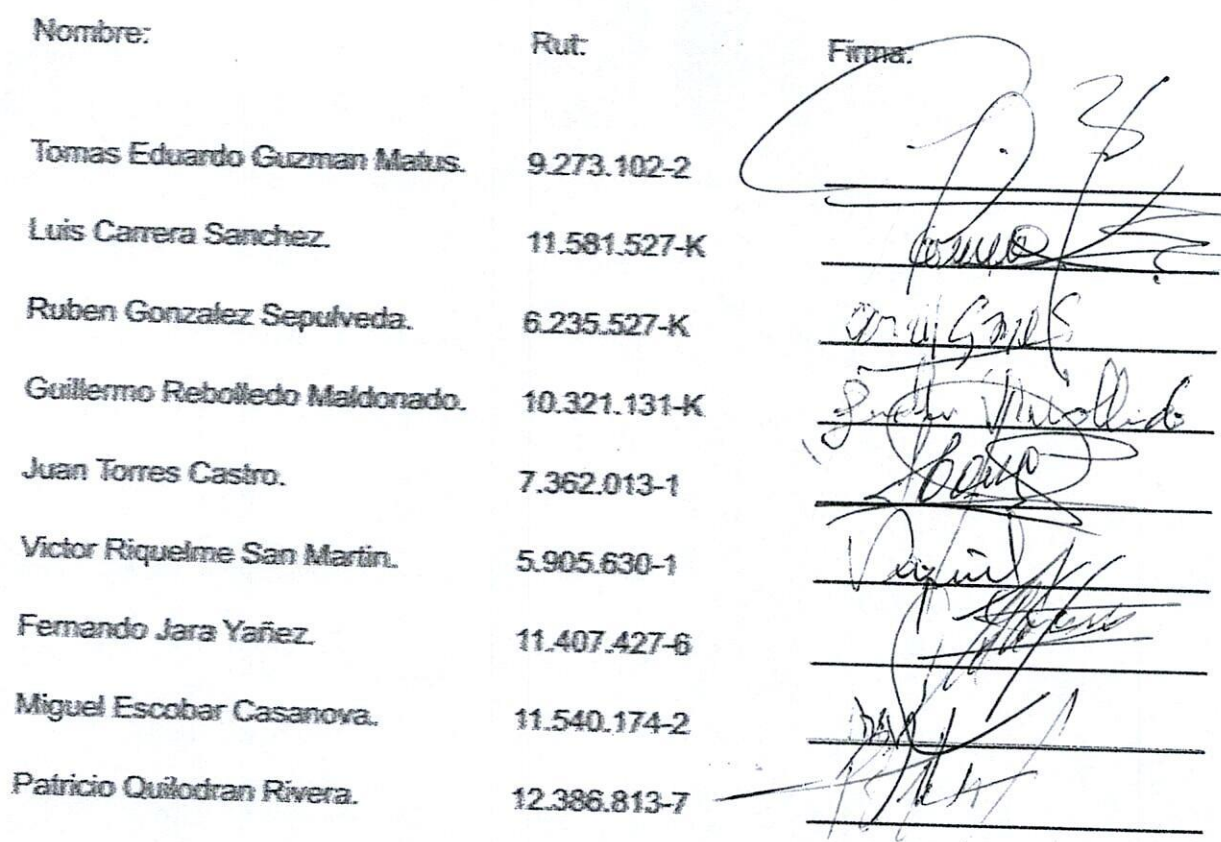 Nombre: Rut: Firma:
Tomas Eduardo Guzman Matus. 9.273.102-2
Luis Carrera Sanchez. 11.581.527-K
Ruben Gonzalez Sepulveda. 6.235.527-K
Guillermo Rebolledo Maldonado. 10.321.131-K
Juan Torres Castro. 7.362.013-1
Victor Riquelme San Martin. 5.905.630-1
Fernando Jara Yañez. 11.407.427-6
Miguel Escobar Casanova. 11.540.174-2
Patricio Quilodran Rivera. 12.386.813-7